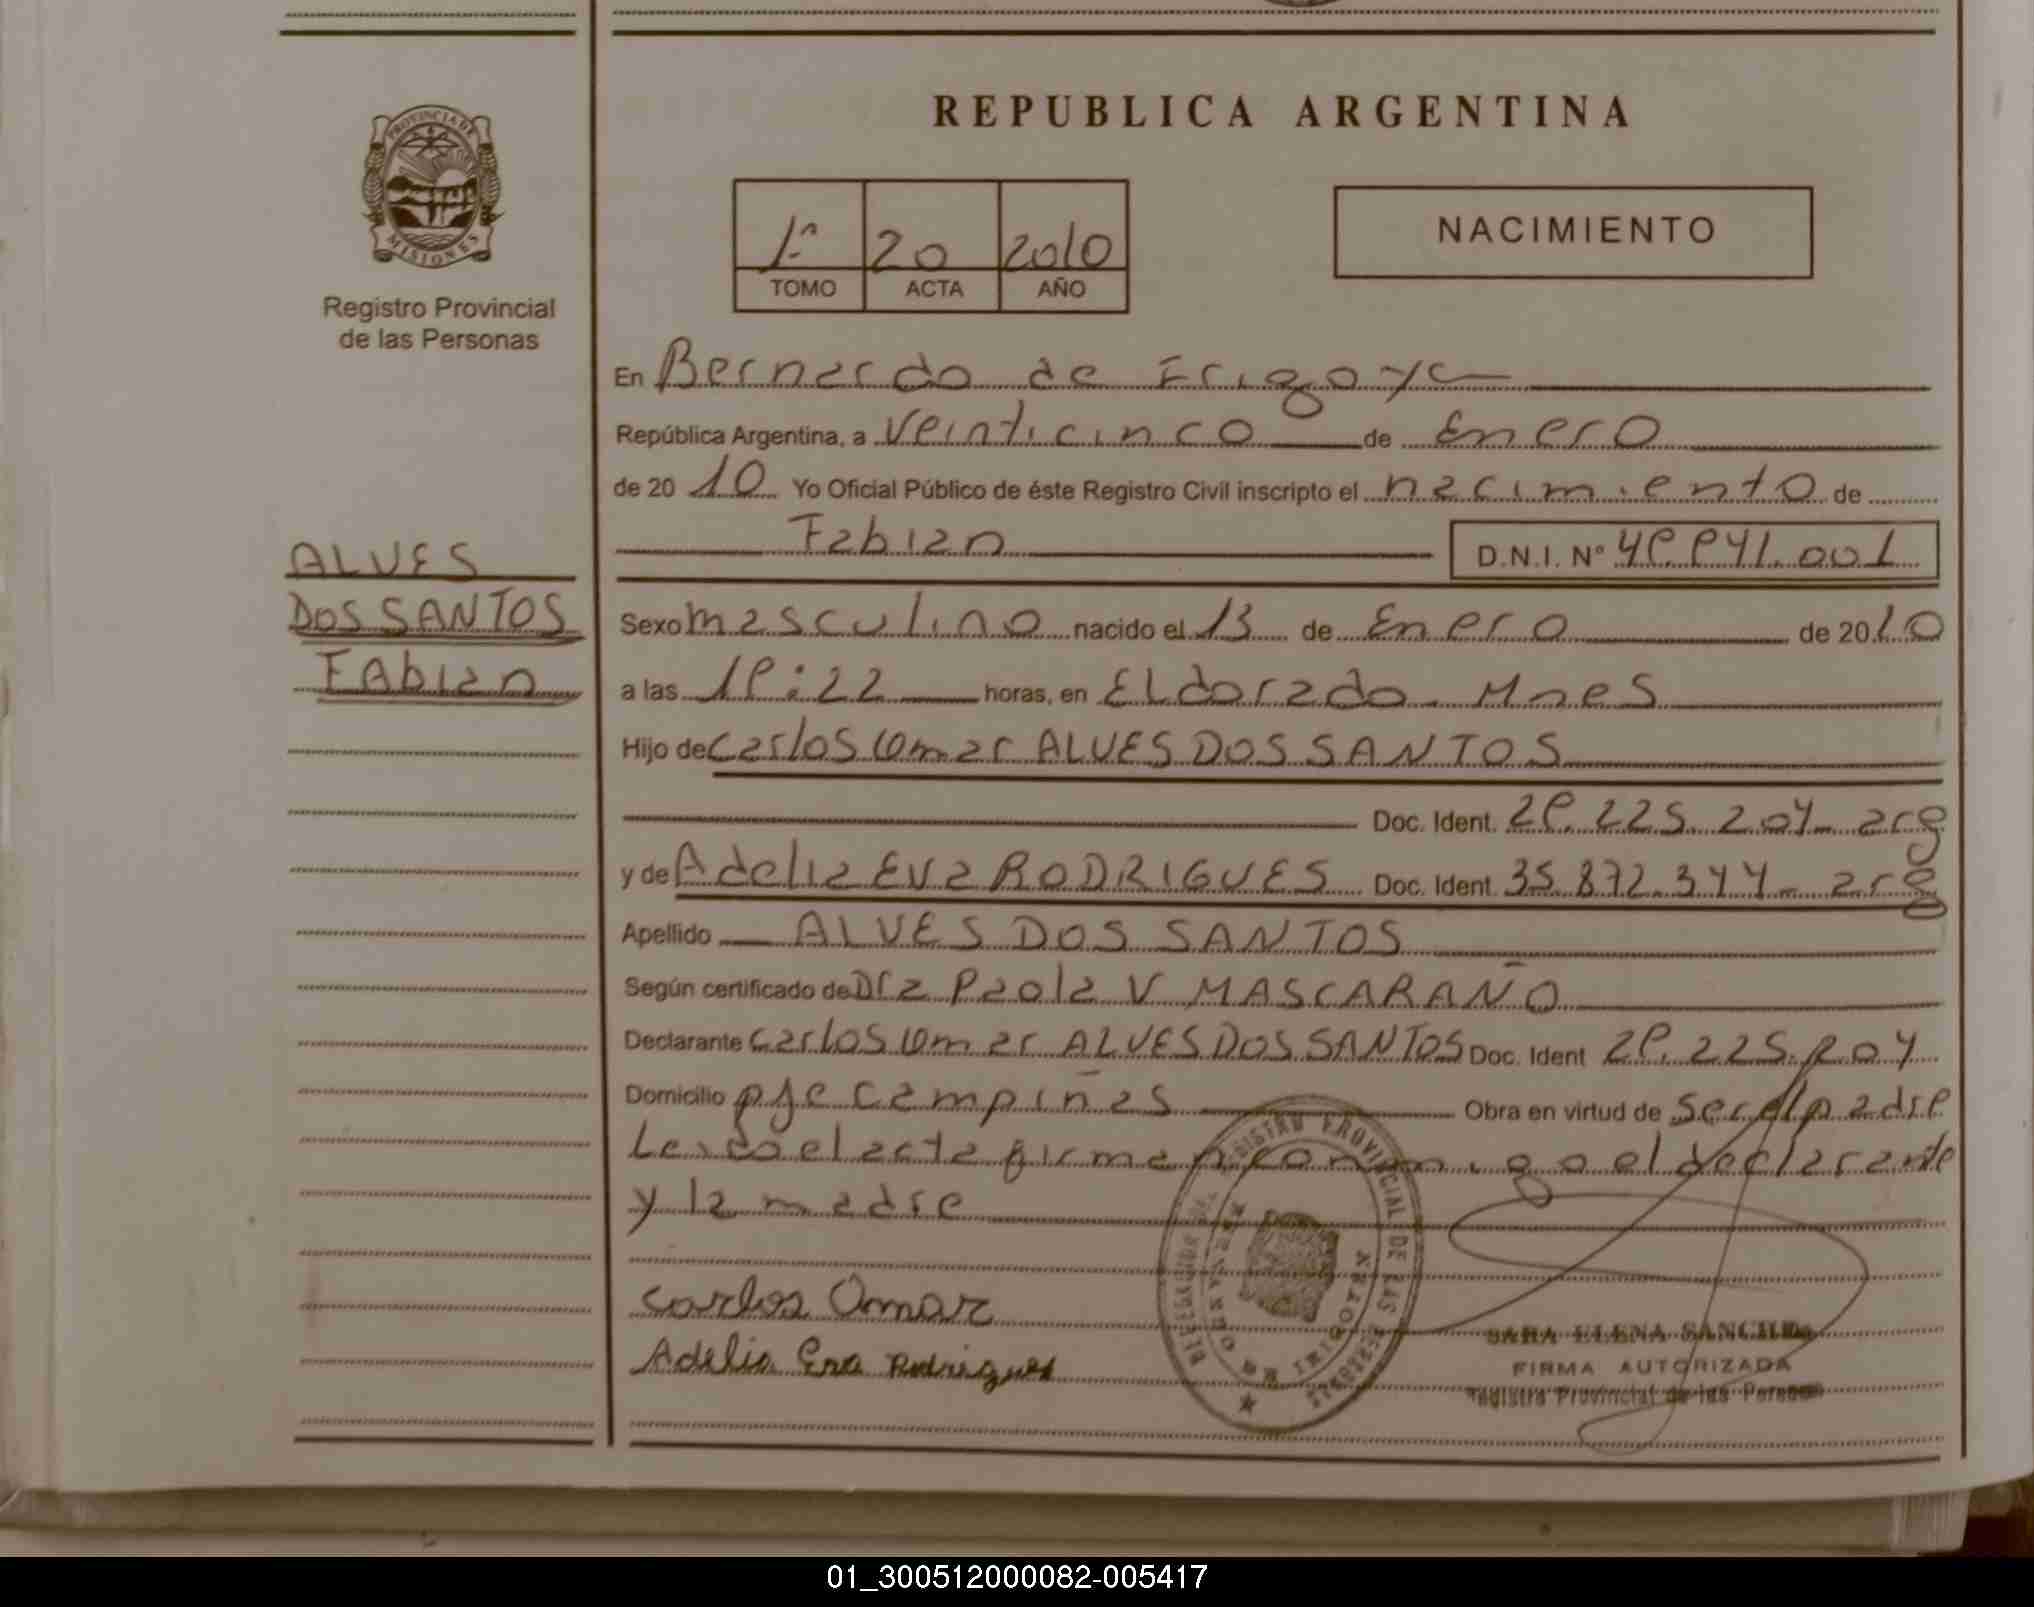 REPUBLICA ARGENTINA
PROVINCIA DE
MISIONES
Registro Provincial
de las Personas
1ª 20 2010
TOMO ACTA AÑO
NACIMIENTO
En Bernardo de Irigoye
República Argentina, a Veinticinco de Enero
de 20 10 Yo Oficial Público de éste Registro Civil inscripto el nacimiento de
Fabian D.N.I. Nº 49.941.001
ALVES
DOS SANTOS
FAbian
Sexo masculino nacido el 13 de Enero de 2010
a las 19:22 horas, en ELdorado Mnes
Hijo de Carlos Omar ALVES DOS SANTOS
Doc. Ident. 29.225.204 - arg
y de Adelia Eva RODRIGUES Doc. Ident. 35.872.344 - arg
Apellido ALVES DOS SANTOS
Según certificado de Dra Paola V MASCARAÑO
Declarante Carlos Omar ALVES DOS SANTOS Doc. Ident 29.225.204
Domicilio pje campiñas Obra en virtud de ser el padre
Leido el acta firman conmigo el declarante
y la madre
Carlos Omar
Adelia Eva Rodrigues
REGISTRO PROVINCIAL DE LAS PERSONAS
BERNARDO DE IRIGOYEN
SARA ELENA
FIRMA AUTORIZADA
Registro Provincial de las Personas
01_300512000082-005417